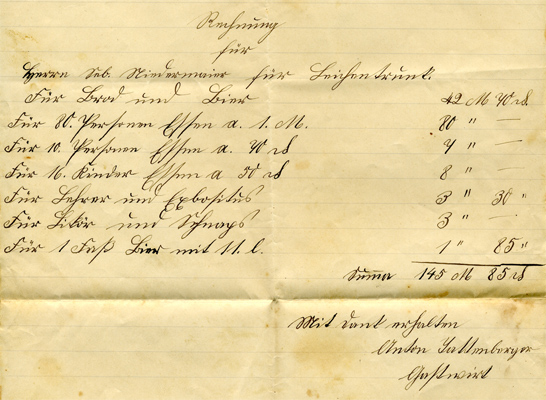 Rechnung
für
Herrn Seb. Niedermaier für Leichentrunk.
Für Brod und Bier 42 M 70 ₰
Für 80. Personen Essen a. 1. M. 80 " —
Für 10. Personen Essen a. 70 ₰ 7 " —
Für 16. Kinder Essen a 50 ₰ 8 " —
Für Lehrer und Expositus 3 " 30 "
Für Likör und Schnaps 3 " —
Für 1 Faß Bier mit 11. l. 1 " 85 "
Summa 145 M 85 ₰
Mit Dank erhalten
Anton Sattenberger
Gastwirt